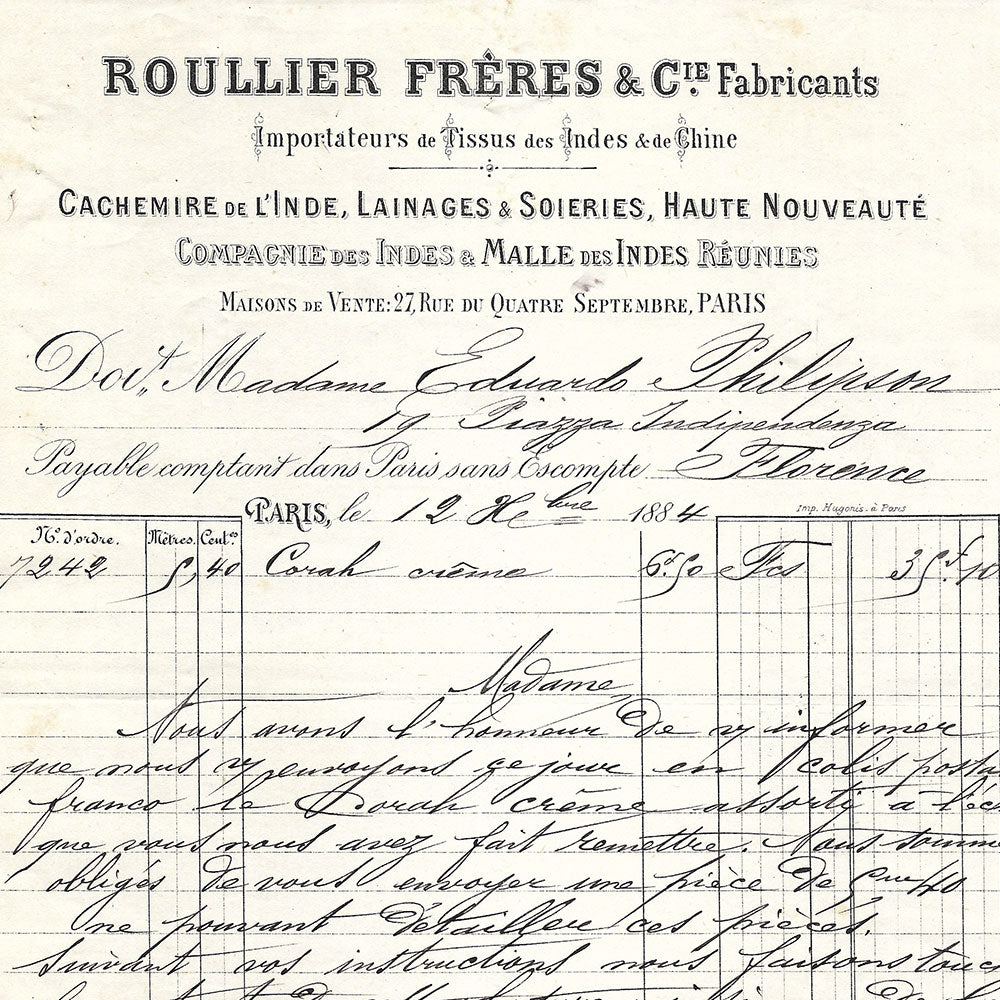 ROULLIER FRÈRES & CIE. Fabricants
Importateurs de Tissus des Indes & de Chine
CACHEMIRE DE L'INDE, LAINAGES & SOIERIES, HAUTE NOUVEAUTÉ
COMPAGNIE DES INDES & MALLE DES INDES RÉUNIES
MAISONS DE VENTE: 27, RUE DU QUATRE SEPTEMBRE, PARIS
Doit, Madame Eduardo Philipson
19 Piazza Indipendenza
Payable comptant dans Paris sans Escompte Florence
PARIS, le 12 Xbre 1884
Imp. Hugonis. à Paris
No. d'ordre. Mètres. Centes
7242 5,40 Corah crême 6f.50 Fcs 35f.10
Madame,
Nous avons l'honneur de v informer
que nous v envoyons ce jour en colis posta
franco le Corah crême assorti à l'éc
que vous nous avez fait remettre. Nous somme
obligés de vous envoyer une pièce de 5m 40
ne pouvant détailler ces pièces.
Suivant vos instructions nous faisons touc